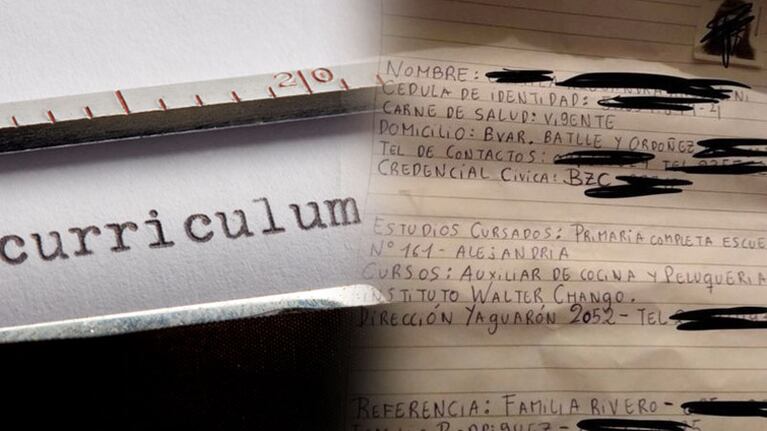 20
curriculum
NOMBRE:
CEDULA DE IDENTIDAD:
CARNE DE SALUD: VIGENTE
DOMICILIO: BVAR. BATLLE Y ORDOÑEZ
TEL DE CONTACTOS: TEL
CREDENCIAL CIVICA: BZC
ESTUDIOS CURSADOS: PRIMARIA COMPLETA ESCUE
Nº 161 - ALEJANDRIA
CURSOS: AUXILIAR DE COCINA Y PELUQUERIA
INSTITUTO WALTER CHANGO.
DIRECCIÓN YAGUARÓN 2052 - TEL
REFERENCIA: FAMILIA RIVERO -
RODRIGUEZ -